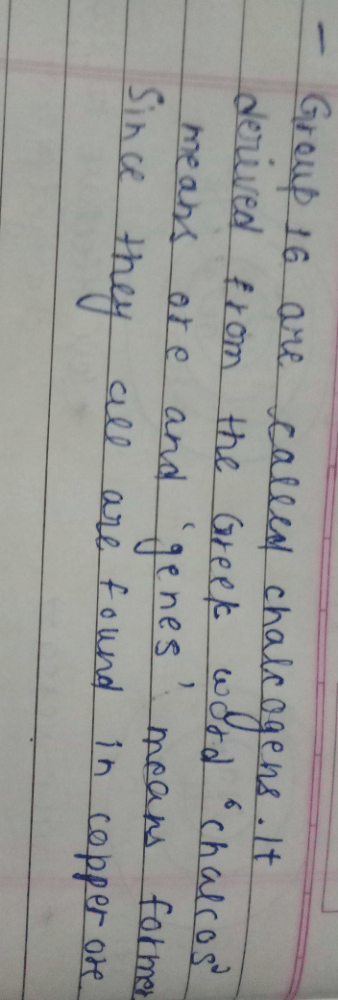 - Group 16 are called chalcogens. It
derived from the Greek word 'chalcos'
means ore and 'genes' means former
Since they all are found in copper ore